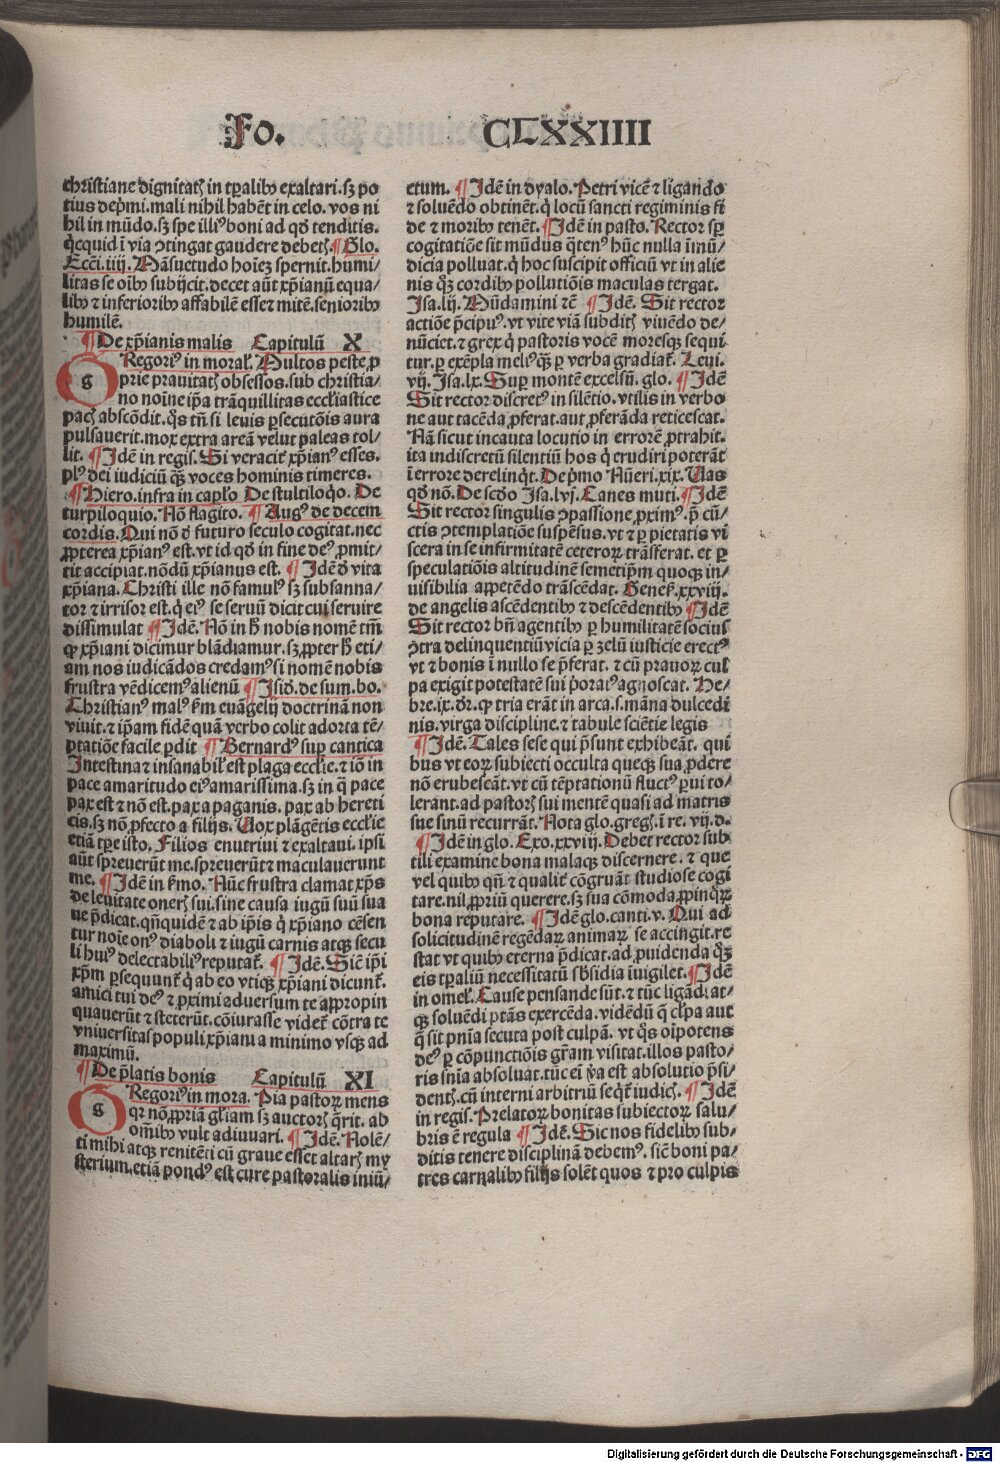 Fo. CLXXIIII
christiane dignitatꝭ in tꝑalibꝰ exaltari. sꝫ po
tius dep̄mi. mali nihil habēt in celo. vos ni
hil in mūdo. sꝫ spe illiꝰ boni ad qđ tenditis.
q̇cquid ī via ↄtingat gaudere debetꝭ. ¶ Glo.
Ecci. iiij. Māsuetudo hoīeꝫ spernit. humi/
litas se oībꝰ subijcit. decet aūt xp̄ianū equa/
libꝰ ⁊ inferioribꝰ affabilē esse ⁊ mitē. senioribꝰ
humilē.
¶ De xp̄ianis malis Capitulū X
G Regoriꝰ in moral̓. Multos peste ꝓ
prie prauitatꝭ obsessos. sub christia/
no noīne ip̄a trāquillitas eccl̓iastice
pacꝭ abscōdit. q̇s tn̄ si leuis ꝑsecutōis aura
pulsauerit. mox extra areā velut paleas tol/
lit. ¶ Idē in regis. Si veracit̓ xp̄ianꝰ esses.
plꝰ dei iudiciū qꝫ̄ voces hominis timeres.
¶ Hiero. infra in cap̓lo De stultiloq̇o. De
turpiloquio. Nō flagito. ¶ Augꝰ de decem
cordis. Qui nō đ futuro seculo cogitat. nec
ꝓpterea xp̄ianꝰ est. vt id qđ in fine deꝰ ꝓmit/
tit accipiat. nōdū xp̄ianus est. ¶ Idē đ vita
xp̄iana. Christi ille nō famulꝰ sꝫ subsanna/
tor ⁊ irrisor est. q̇ eiꝰ se seruū dicit cui seruire
dissimulat ¶ Idē. Nō in ħ nobis nomē tm̄
ꝙ xp̄iani dicimur blādiamur. sꝫ ꝓpter ħ eti/
am nos iudicādos credamꝰ si nomē nobis
frustra vēdicemꝰ alienū ¶ Isiđ. de sum. bo.
Christianꝰ malꝰ ẜm euāgelij doctrinā non
viuit. ⁊ ip̄am fidē quā verbo colit adorta tē/
ptatiōe facile ꝑdit ¶ Bernardꝰ suꝑ cantica
Intestina ⁊ insanabil̓ est plaga eccl̓ie. ⁊ iō in
pace amaritudo eiꝰ amarissima. sꝫ in q̄ pace
pax est ⁊ nō est. pax a paganis. pax ab hereti
cis. sꝫ nō ꝓfecto a filijs. Vox plāgētis eccl̓ie
etiā tꝑe isto. Filios enutriui ⁊ exaltaui. ipsi
aūt spreuerūt me. spreuerūt ⁊ maculauerunt
me. ¶ Idē in ẜmo. Nūc frustra clamat xp̄s
de leuitate onerꝭ sui. sine causa iugū suū sua
ue p̄dicat. qn̄quidē ⁊ ab ip̄is q̇ xp̄iano cēsen
tur noīe onꝰ diaboli ⁊ iugū carnis atqꝫ secu
li huiꝰ delectabiliꝰ reputat̓. ¶ Idē. Sic ip̄i
xp̄m ꝑsequunt̓ q̇ ab eo vtiqꝫ xp̄iani dicunt̓.
amici tui deꝰ ⁊ ꝓximi aduersum te appropin
quauerūt ⁊ steterūt. cōiurasse videt̓ cōtra te
vniuersitas populi xp̄iani a minimo vsqꝫ ad
maximū.
¶ De p̄latis bonis Capitulū XI
G Regoriꝰ in mora. Pia pastoꝝ mens
qꝛ nō ꝓpriā gl̓iam sꝫ auctorꝭ q̄rit. ab
om̄ibꝰ vult adiuuari. ¶ Idē. Nolē/
ti mihi atqꝫ renitēti cū graue esset altarꝭ my
sterium. etiā pondꝰ est cure pastoralis iniū/
ctum. ¶ Idē in dyalo. Petri vicē ⁊ ligando
⁊ soluēdo obtinēt. q̇ locū sancti regiminis fi
de ⁊ moribꝰ tenēt. ¶ Idē in pasto. Rector sꝑ
cogitatiōe sit mūdus q̇tenꝰ hūc nulla īmū/
dicia polluat. q̇ hoc suscipit officiū vt in alie
nis q̇ꝫ cordibꝰ pollutiōis maculas tergat.
Isa. lij. Mūdamini ⁊c̄ ¶ Idē. Sit rector
actiōe p̄cipuꝰ. vt vite viā subditꝭ viuēdo de/
nūciet. ⁊ grex q̇ pastoris vocē moresqꝫ sequi
tur. ꝑ exēpla meliꝰ qꝫ̄ ꝑ verba gradiat̓. Leui.
vij. Isa. lx. Suꝑ montē excelsū. glo. ¶ Idē
Sit rector discretꝰ in silētio. vtilis in verbo
ne aut tacēda ꝓferat. aut ꝓferāda reticescat.
Nā sicut incauta locutio in errorē ꝓtrahit.
ita indiscretū silentiū hos q̇ erudiri poterāt
ī errore derelinq̇t. De p̄mo Nūeri. xix. Vas
qđ nō. De scđo Isa. lvj. Canes muti. ¶ Idē
Sit rector singulis ↄpassione ꝓximꝰ. p̄ cū/
ctis ↄtemplatiōe suspēsus. vt ⁊ ꝑ pietatis vi
scera in se infirmitatē ceteroꝝ trāsferat. et ꝑ
speculatiōis altitudinē semetip̄m quoqꝫ in/
uisibilia appetēdo trāscēdat. Geneẜ. xxviij.
de angelis ascēdentibꝰ ⁊ descēdentibꝰ ¶ Idē
Sit rector bn̄ agentibꝰ ꝑ humilitatē socius
ↄtra delinquentiū vicia ꝑ zelū iusticie erectꝰ
vt ⁊ bonis ī nullo se p̄ferat. ⁊ cū prauoꝝ cul
pa exigit potestatē sui p̓oratꝰ agnoscat. He/
bre. ix. đr. ꝙ tria erāt in arca. s. māna dulcedi
nis. virga discipline. ⁊ tabule sciētie legis
¶ Idē. Tales sese qui p̄sunt exhibeāt. qui
bus vt eoꝝ subiecti occulta queqꝫ sua ꝓdere
nō erubescāt. vt cū tēptationū fluctꝰ ꝑui to/
lerant. ad pastorꝭ sui mentē quasi ad matris
sue sinū recurrāt. Nota glo. gregꝭ. ī re. vij. d.
¶ Idē in glo. Exo. xxviij. Debet rector sub/
tili examine bona malaqꝫ discernere. ⁊ que
vel quibꝰ qn̄ ⁊ qualit̓ cōgruāt studiose cogi
tare. nil ꝓpriū querere. sꝫ sua cōmoda ꝓpinq̇ꝝ
bona reputare. ¶ Idē glo. canti. v. Qui ad
solicitudinē regēdaꝝ animaꝝ se accingit. re
stat vt quibꝰ eterna p̄dicat. ad ꝓuidenda q̇ꝫ
eis tꝑaliū necessitatū sb̄sidia īuigilet. ¶ Idē
in omel̓. Cause pensande sūt. ⁊ tūc ligādi at/
qꝫ soluēdi ptās exercēda. vidēdū q̄ cl̓pa aut
q̄ sit pn̄ia secuta post culpā. vt q̇s oīpotens
deꝰ ꝑ cōpunctiōis gr̄am visitat. illos pasto/
ris sn̄ia absoluat. tūc ei̓ ṽa est absolutio p̄si/
dentꝭ. cū interni arbitriū seqt̓ iudicꝭ. ¶ Idē
in regis. Prelatoꝝ bonitas subiectoꝝ salu/
bris ē regula ¶ Idē. Sic nos fidelibꝰ sub/
ditis tenere disciplinā debemꝰ. sic̄ boni pa/
tres carnalibꝰ filijs solēt quos ⁊ pro culpis
Digitalisierung gefördert durch die Deutsche Forschungsgemeinschaft - DFG